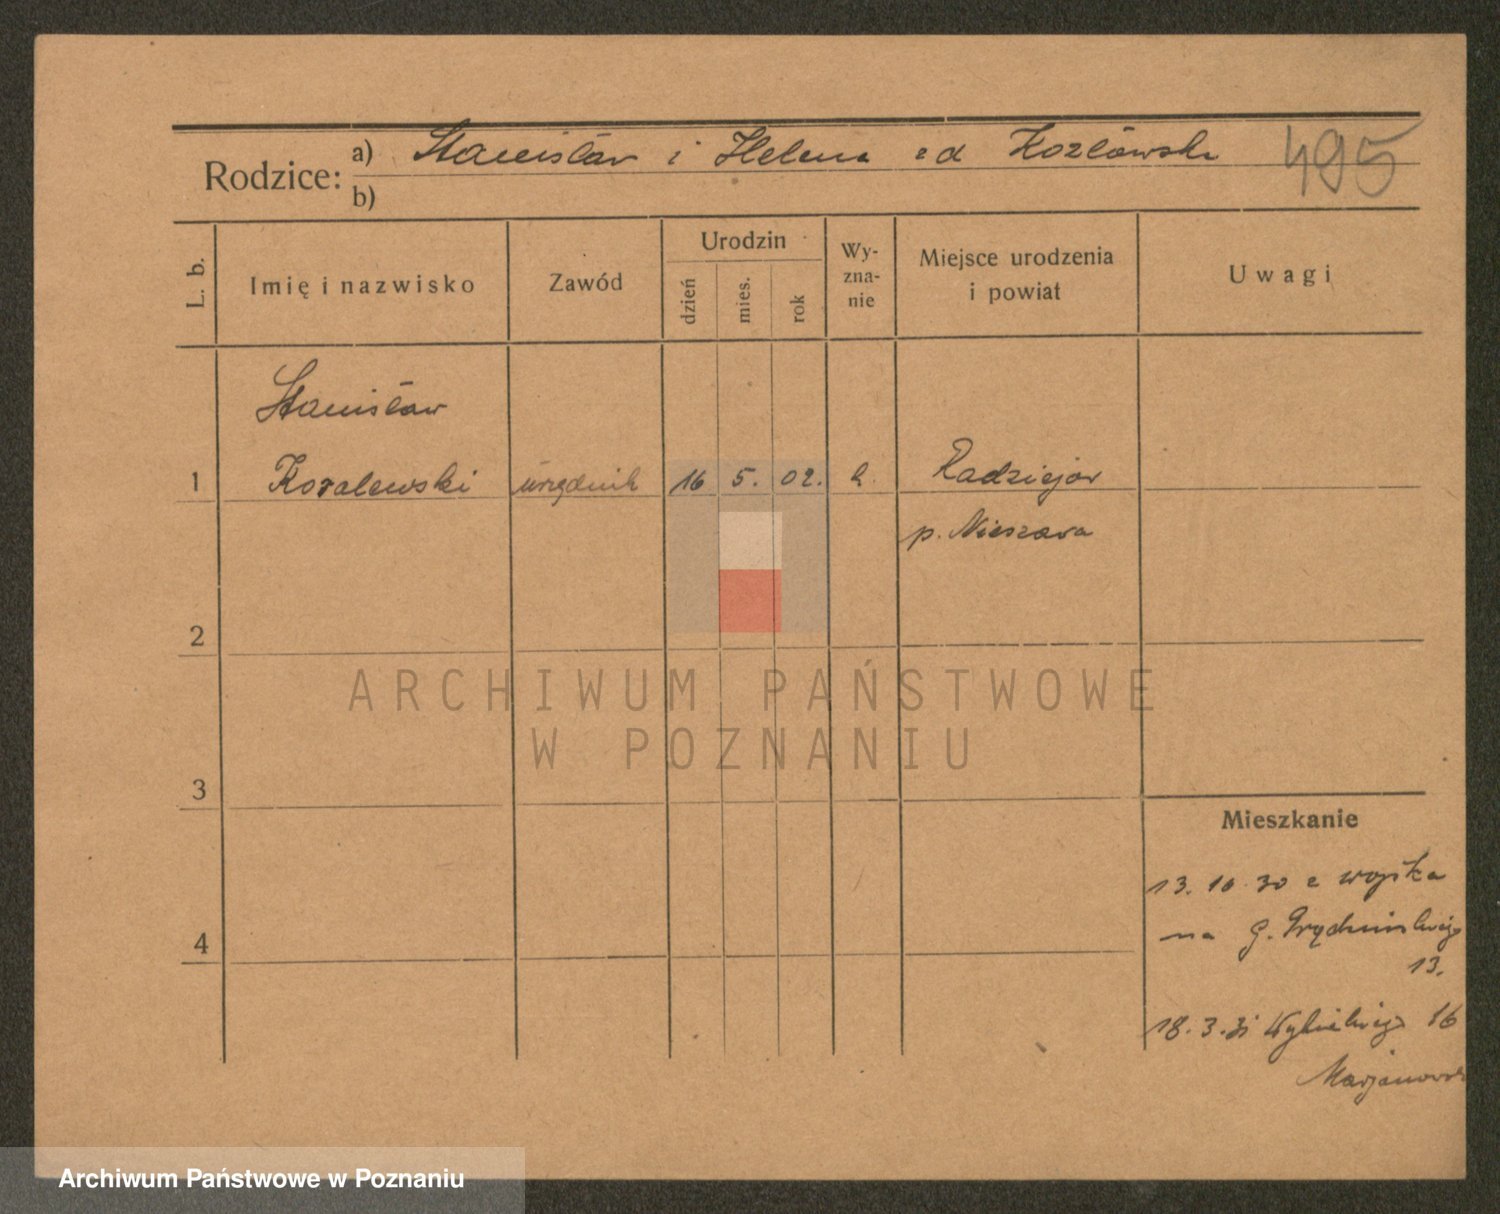 Rodzice: a) Stanisław i Helena zd Kozłowska 495
b)
L. b. Imię i nazwisko Zawód Urodzin dzień mies. rok Wy-zna-nie Miejsce urodzenia i powiat Uwagi
Stanisław
1 Kozalewski urzędnik 16 5. 02. k. Radziejów
p. Nieszawa
2
ARCHIWUM PAŃSTWOWE
W POZNANIU
3
Mieszkanie
13. 10. 30 z wojska
4 na G. Prądzyńskiego
13.
18. 3. 31 Wybickiego 16
Archiwum Państwowe w Poznaniu